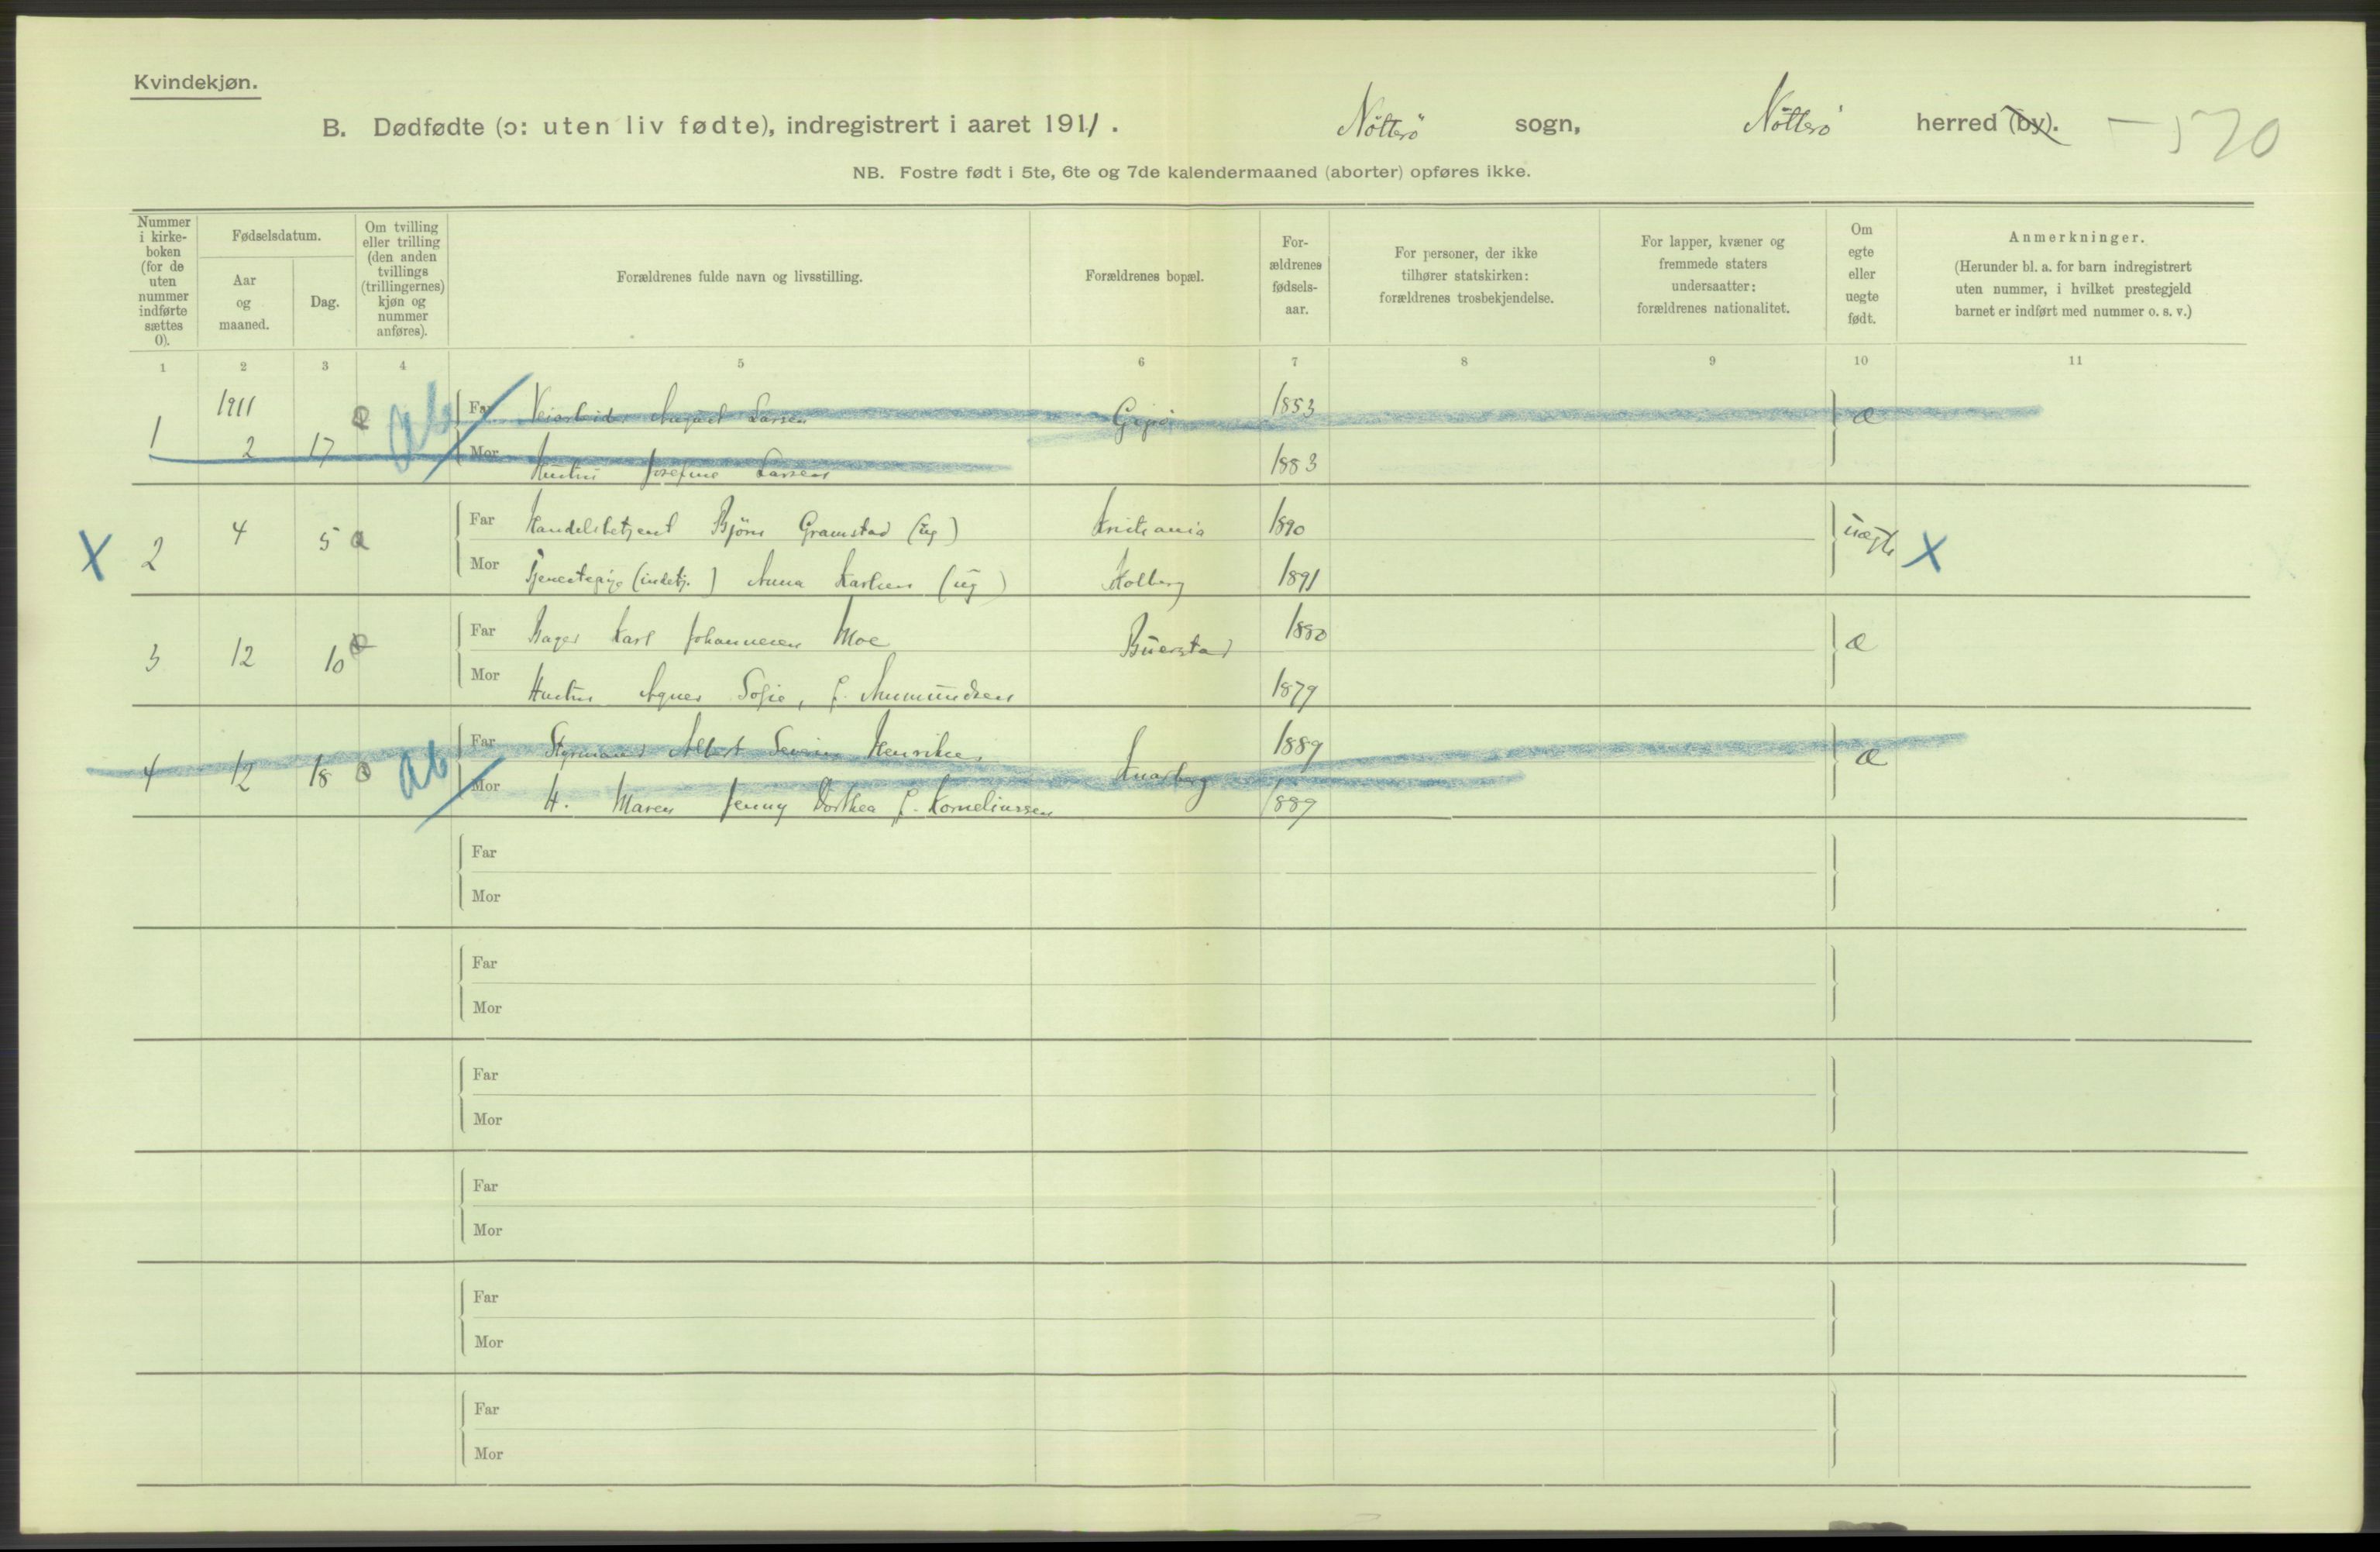 Kvindekjøn.
B. Dødfødte (ɔ: uten liv fødte), indregistrert i aaret 1911. Nötterö sogn, Nötterö herred (by). - 570
NB. Fostre født i 5te, 6te og 7de kalendermaaned (aborter) opføres ikke.
Nummer i kirke-boken (for de uten nummer indførte sættes 0).
Fødselsdatum.
Aar og maaned.
Dag.
Om tvilling eller trilling (den anden tvillings (trillingernes) kjøn og nummer anføres).
Forældrenes fulde navn og livsstilling.
Forældrenes bopæl.
For-ældrenes fødsels-aar.
For personer, der ikke tilhører statskirken: forældrenes trosbekjendelse.
For lapper, kvæner og fremmede staters undersaatter: forældrenes nationalitet.
Om egte eller uegte født.
Anmerkninger.
(Herunder bl. a. for barn indregistrert uten nummer, i hvilket prestegjeld barnet er indført med nummer o. s. v.)
1 2 3 4 5 6 7 8 9 10 11
1911
1 2 17 ab Far August Larsen 1853 æ
Mor Hustru Josefine Larsen 1883
X 2 4 5 Far Handelsbetjent Bjørn Gramstad (ug) Kristiania 1890 uægte X
Mor Tjenestepige (indetj.) Anna Karlsen (ug) Kolberg 1891
3 12 10 Far Bager Karl Johannesen Moe Buerstad 1880 æ
Mor Hustru Agnes Sofie, f. Anmundsen 1879
4 12 18 ab Far Styrmand Albert Severin Henriksen Knarberg 1889 æ
Mor H. Maren Jenny Dorthea f. Korneliussen 1889
Far
Mor
Far
Mor
Far
Mor
Far
Mor
Far
Mor
Far
Mor